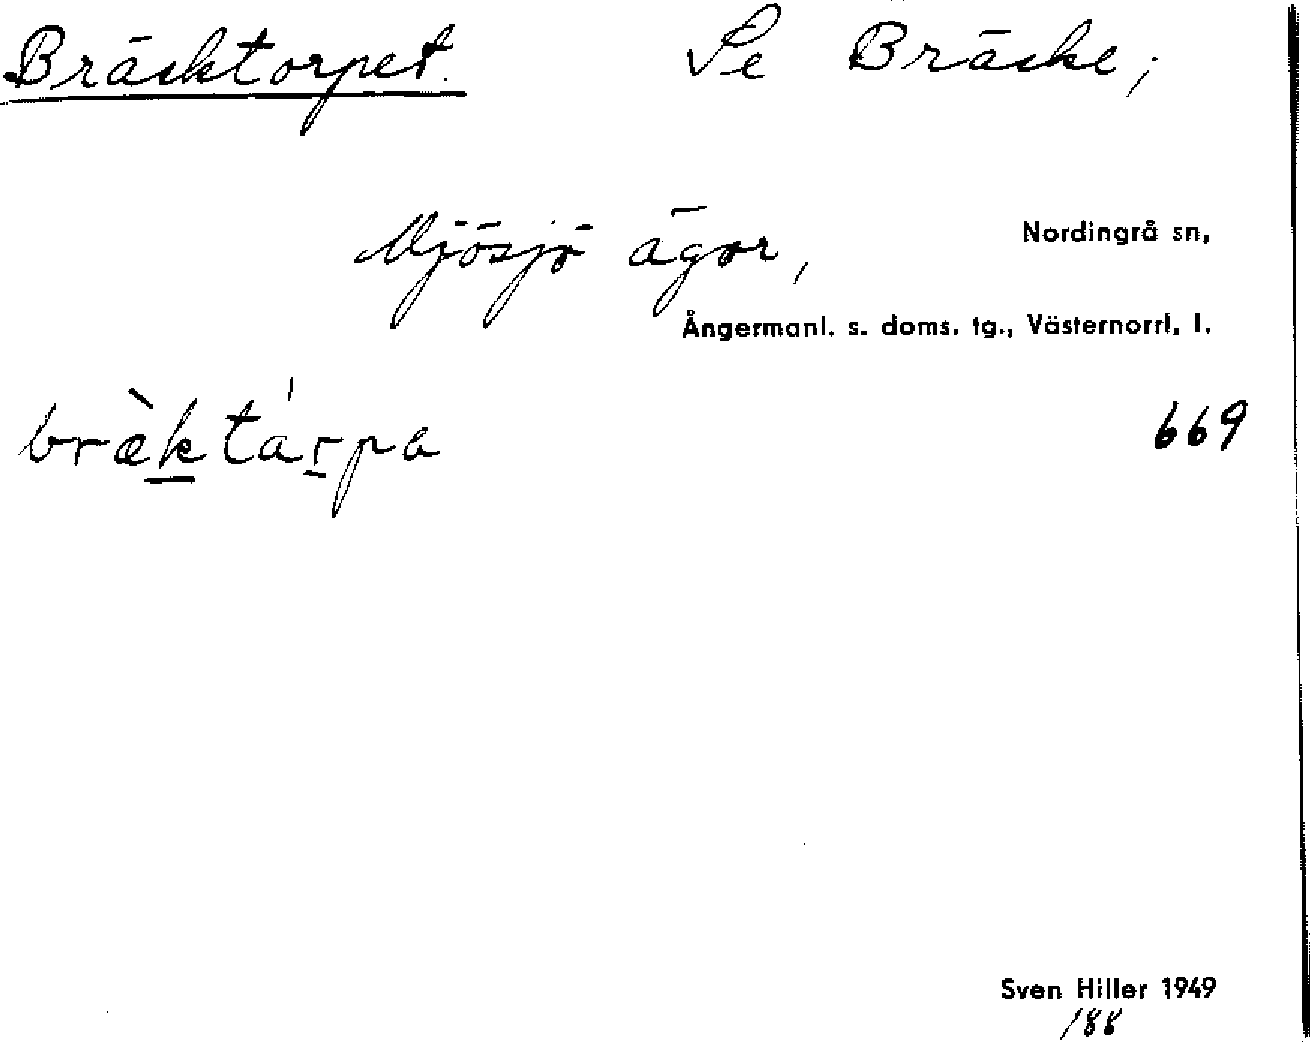 Bräcktorpet. Se Bräcke;
Mjösjö ägor, Nordingrå sn,
Ångermanl. s. doms. tg., Västernorrl. l.
bræ̀ktárpa 669
Sven Hiller 1949
188